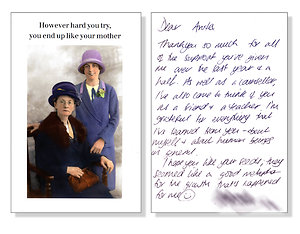 However hard you try,
you end up like your mother
Dear Anita
Thankyou so much for all
of the support you've given
me over the last year & a
half. As well as a counsellor,
I've also come to think of you
as a friend & a teacher. I'm
grateful for everything that
I've learned from you - about
myself & about human beings
in general.
I hope you like your cards, they
seemed like a good metaphor
for the growth that's happened
for me